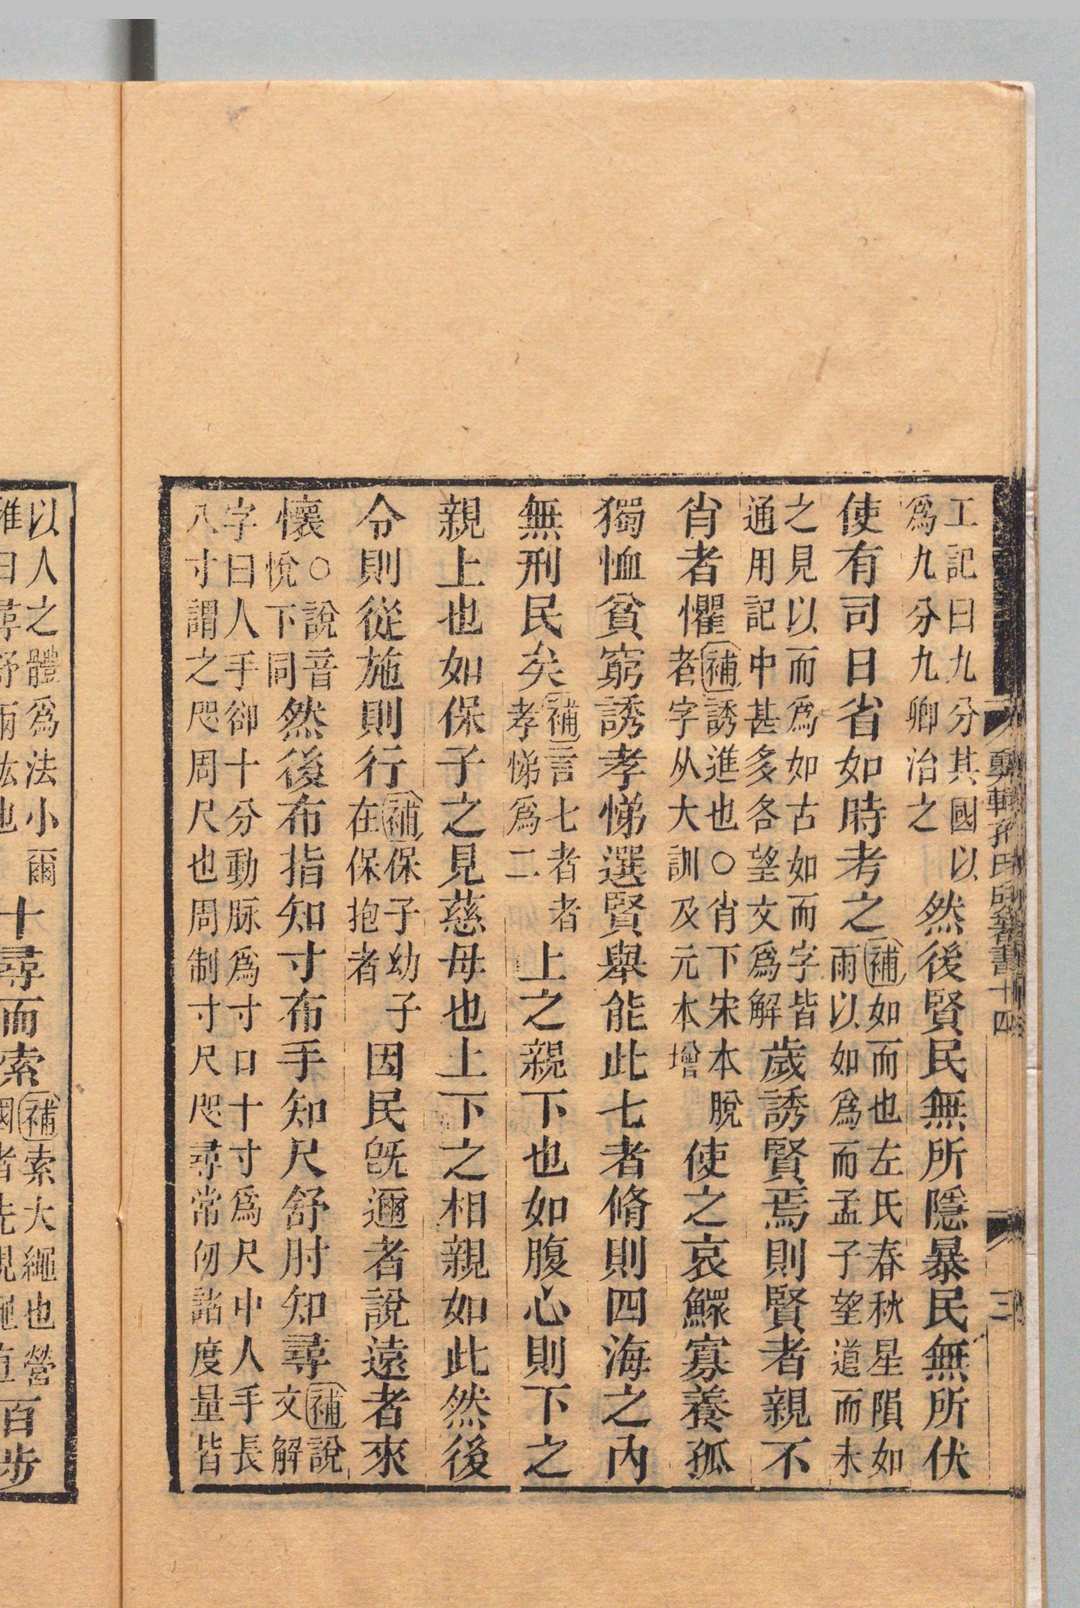 工記曰九分其國以
爲九分九卿治之
然後賢民無所隱暴民無所伏
使有司日省如時考之
補如而也左氏春秋星隕如
雨以如爲而孟子望道而未
之見以而爲如古如而字皆
通用記中甚多各望文爲解
歲誘賢焉則賢者親不
肖者懼
補誘進也○肖下宋本脫
者字从大訓及元本增
使之哀鰥寡養孤
獨恤貧窮誘孝悌選賢舉能此七者脩則四海之內
無刑民矣
補言七者者
孝悌爲二
上之親下也如腹心則下之
親上也如保子之見慈母也上下之相親如此然後
令則從施則行
補保子幼子
在保抱者
因民旣邇者說遠者來
懷
○說音
悅下同
然後布指知寸布手知尺舒肘知尋
補說
文解
字曰人手卻十分動脉爲寸口十寸爲尺中人手長
八寸謂之咫周尺也周制寸尺咫尋常仞諸度量皆
以人之體爲法小爾
雅曰尋舒兩肱也
十尋而索
補索大繩也營
國者先視繩直
百步